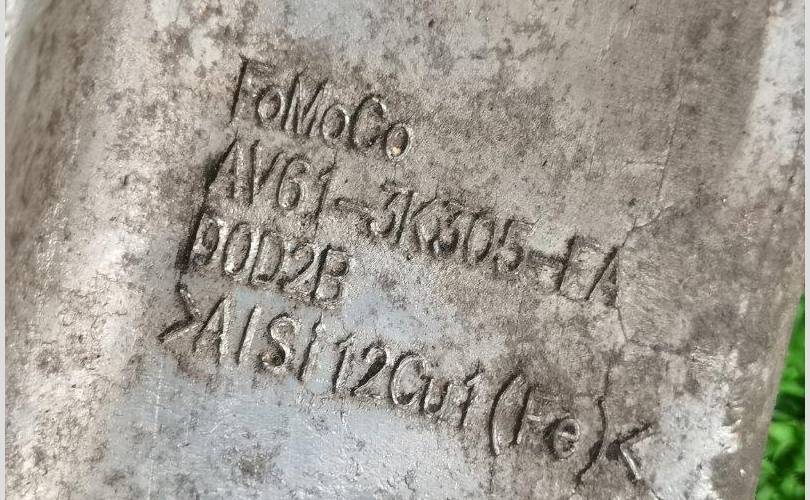 FoMoCo
AV61-3K305-EA
D0D2B
>AlSi12Cu1(Fe)<